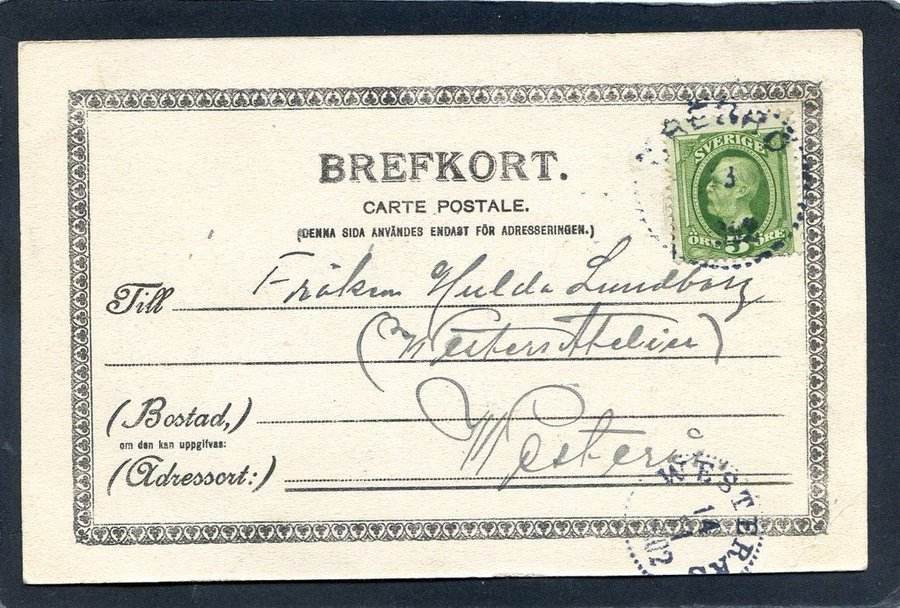 BREFKORT.
CARTE POSTALE.
(DENNA SIDA ANVÄNDES ENDAST FÖR ADRESSERINGEN.)
SVERIGE
5
ÖRE ÖRE
Till Fröken Hulda Lundborg
(Westers Atelier)
(Bostad,)
om den kan uppgifvas:
Westerås
(Adressort:)
WESTERÅS
14
02